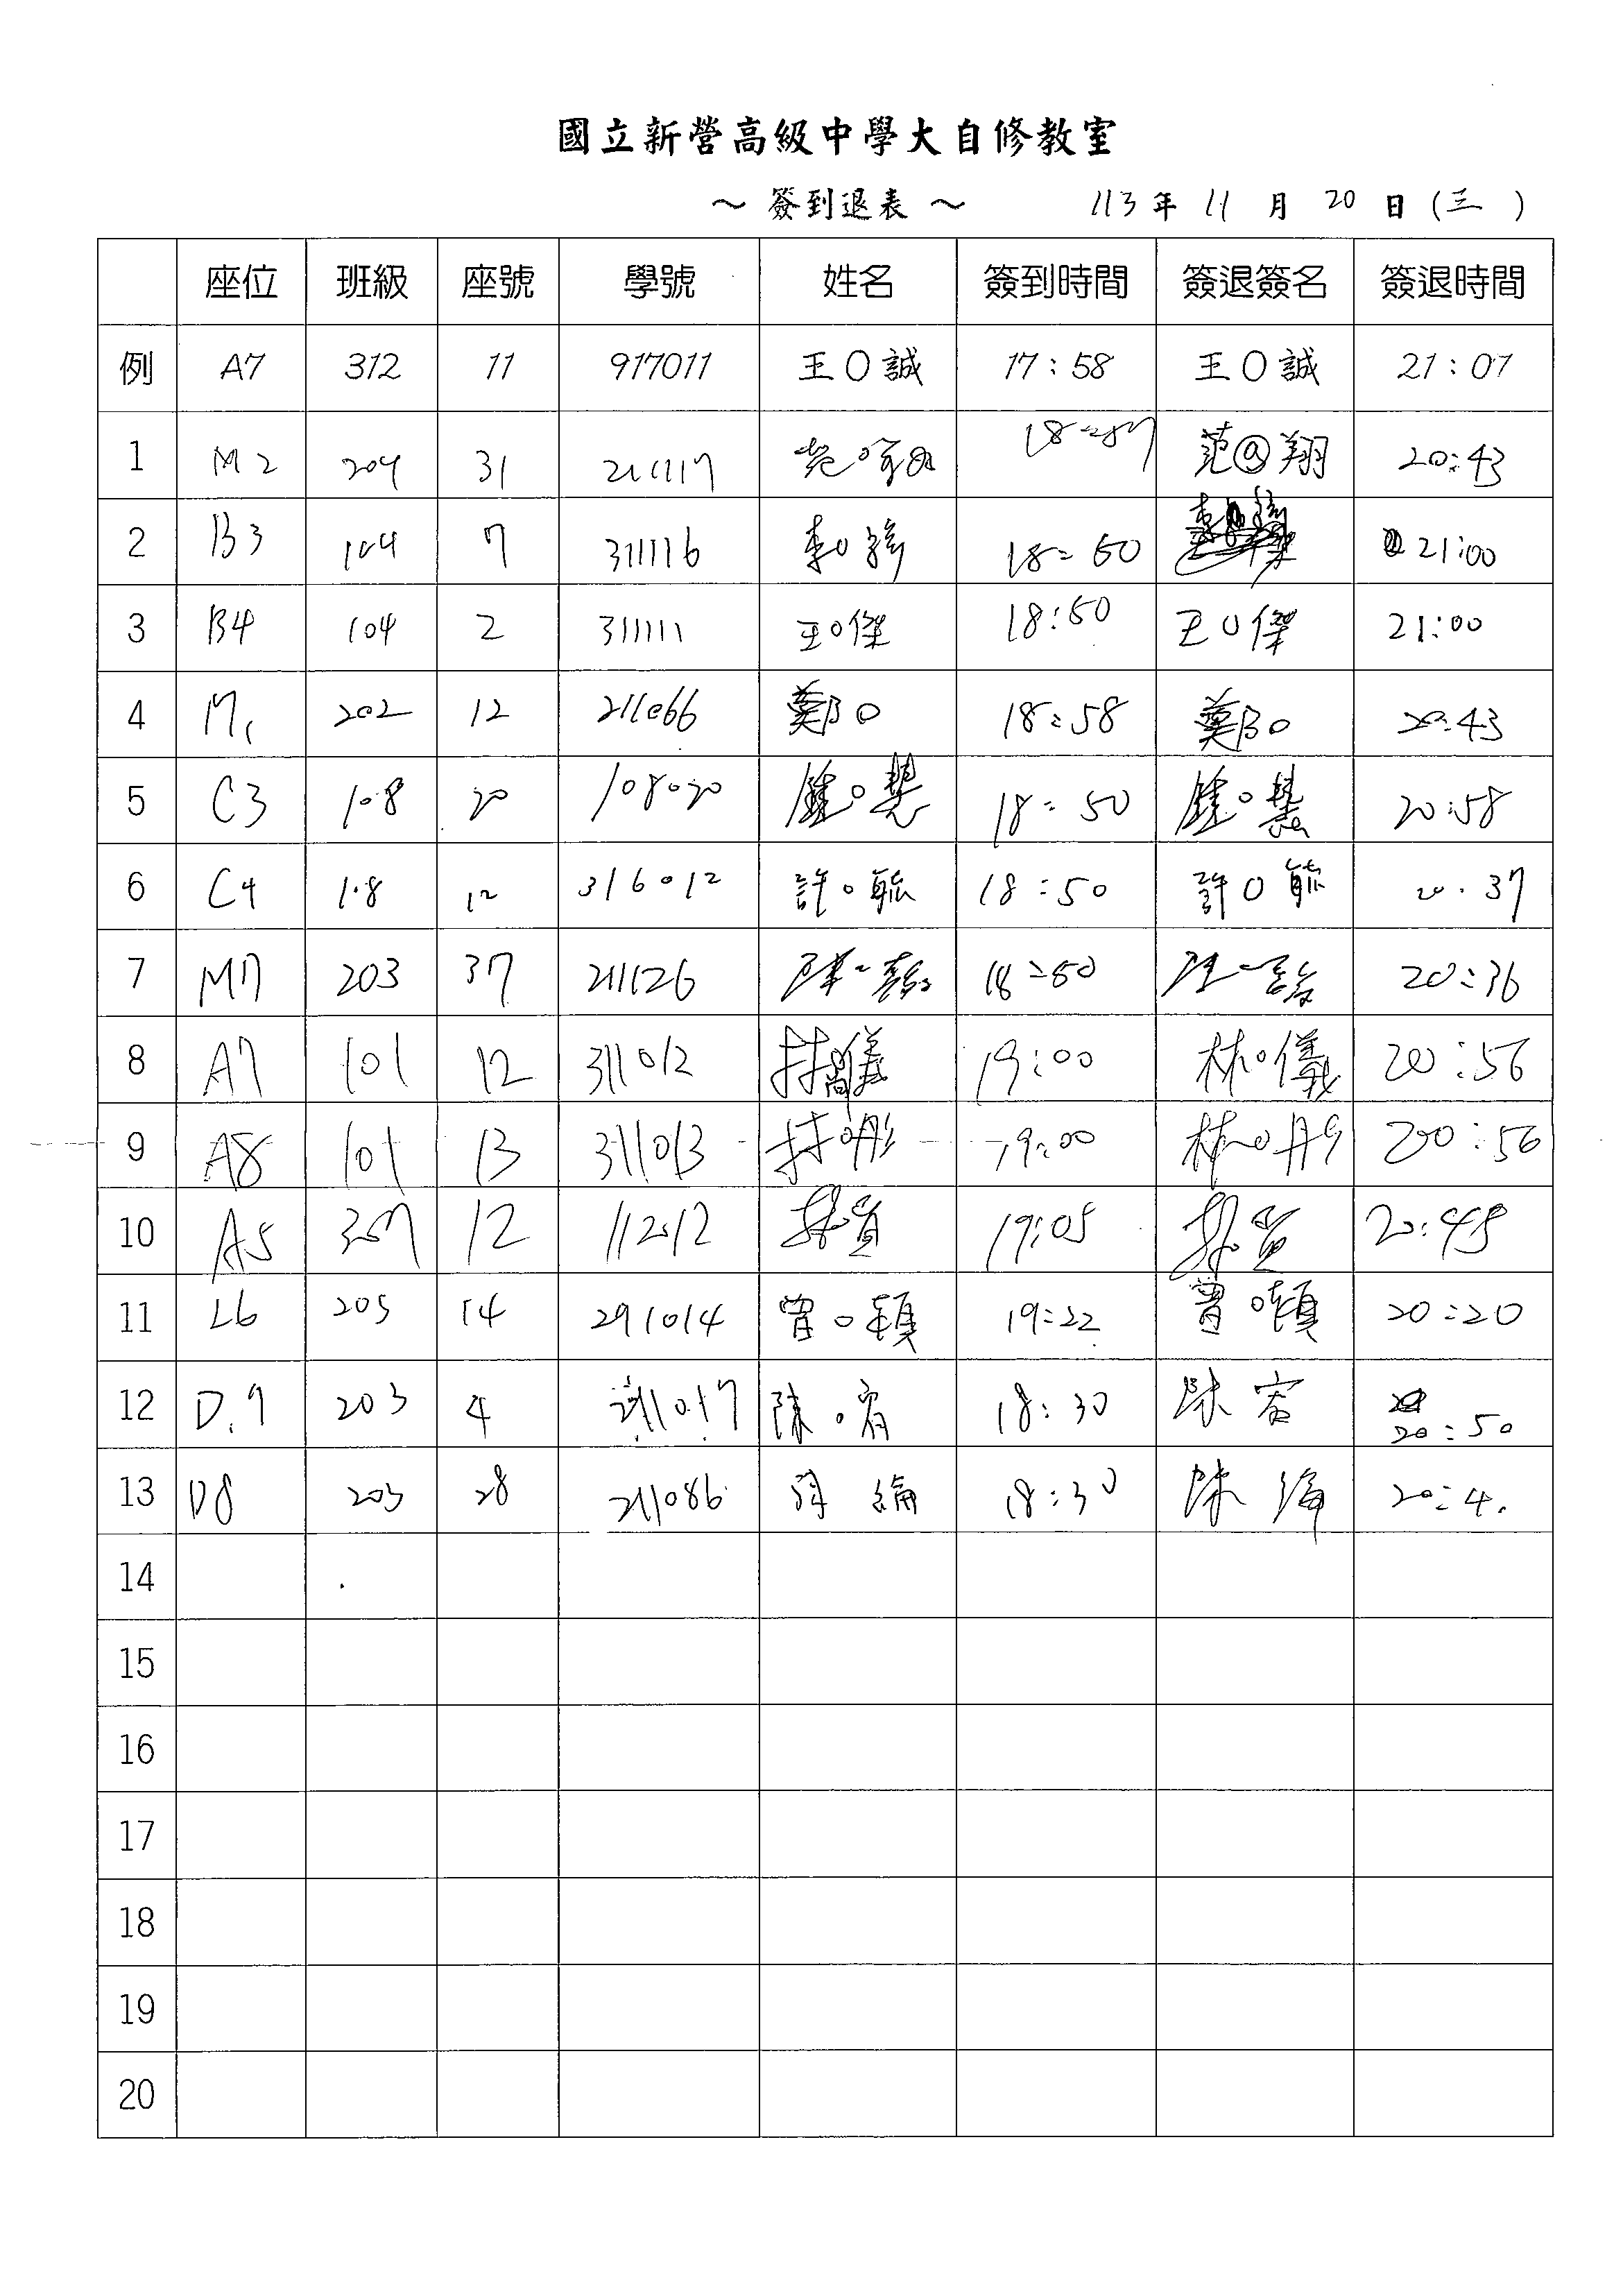 國立新營高級中學大自修教室
～ 簽到退表 ～ 113 年 11 月 20 日 (三)
座位 班級 座號 學號 姓名 簽到時間 簽退簽名 簽退時間
例 A7 312 11 917011 王○誠 17:58 王○誠 21:07
1 M2 204 31 211117 范 翔 20:43
2 B3 104 7 311116 李○ 18:50 21:00
3 B4 104 2 311111 王○傑 18:50 王○傑 21:00
4 M1 202 12 211066 鄭○ 18:58 鄭○ 20:43
5 C3 108 20 108020 鍾○慧 18:50 鍾○慧 20:58
6 C4 108 12 316012 許○毓 18:50 許○毓 20:37
7 M7 203 37 211126 18:50 20:36
8 A7 101 12 311012 林 儀 19:00 林○儀 20:56
9 A8 101 13 311013 林○彤 19:00 林○彤 20:56
10 A5 307 12 112012 19:05 20:45
11 L6 205 14 291014 曾○穎 19:22 曾○穎 20:20
12 D.7 203 4 211017 陳○宥 18:30 陳 宥 20:50
13 D8 203 28 211086 綸 18:30 陳 綸 20:4
14
15
16
17
18
19
20